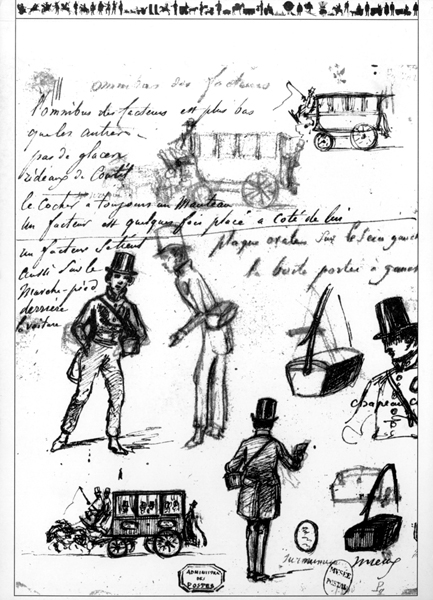 omnibus des facteurs
l'omnibus des facteurs est plus bas
que les autres
pas de glaces
rideaux de Coutil
le Cocher a toujours un Manteau
un facteur est quelques fois placé a Coté de lui
un facteur se tient
aussi sur le
Marche-pied
derriere
la voiture
plaque ovale sur le sein gauch
la boite portée a gauch
chapeau
ADMINISTRA
DES
POSTES
MUSÉE
POSTAL